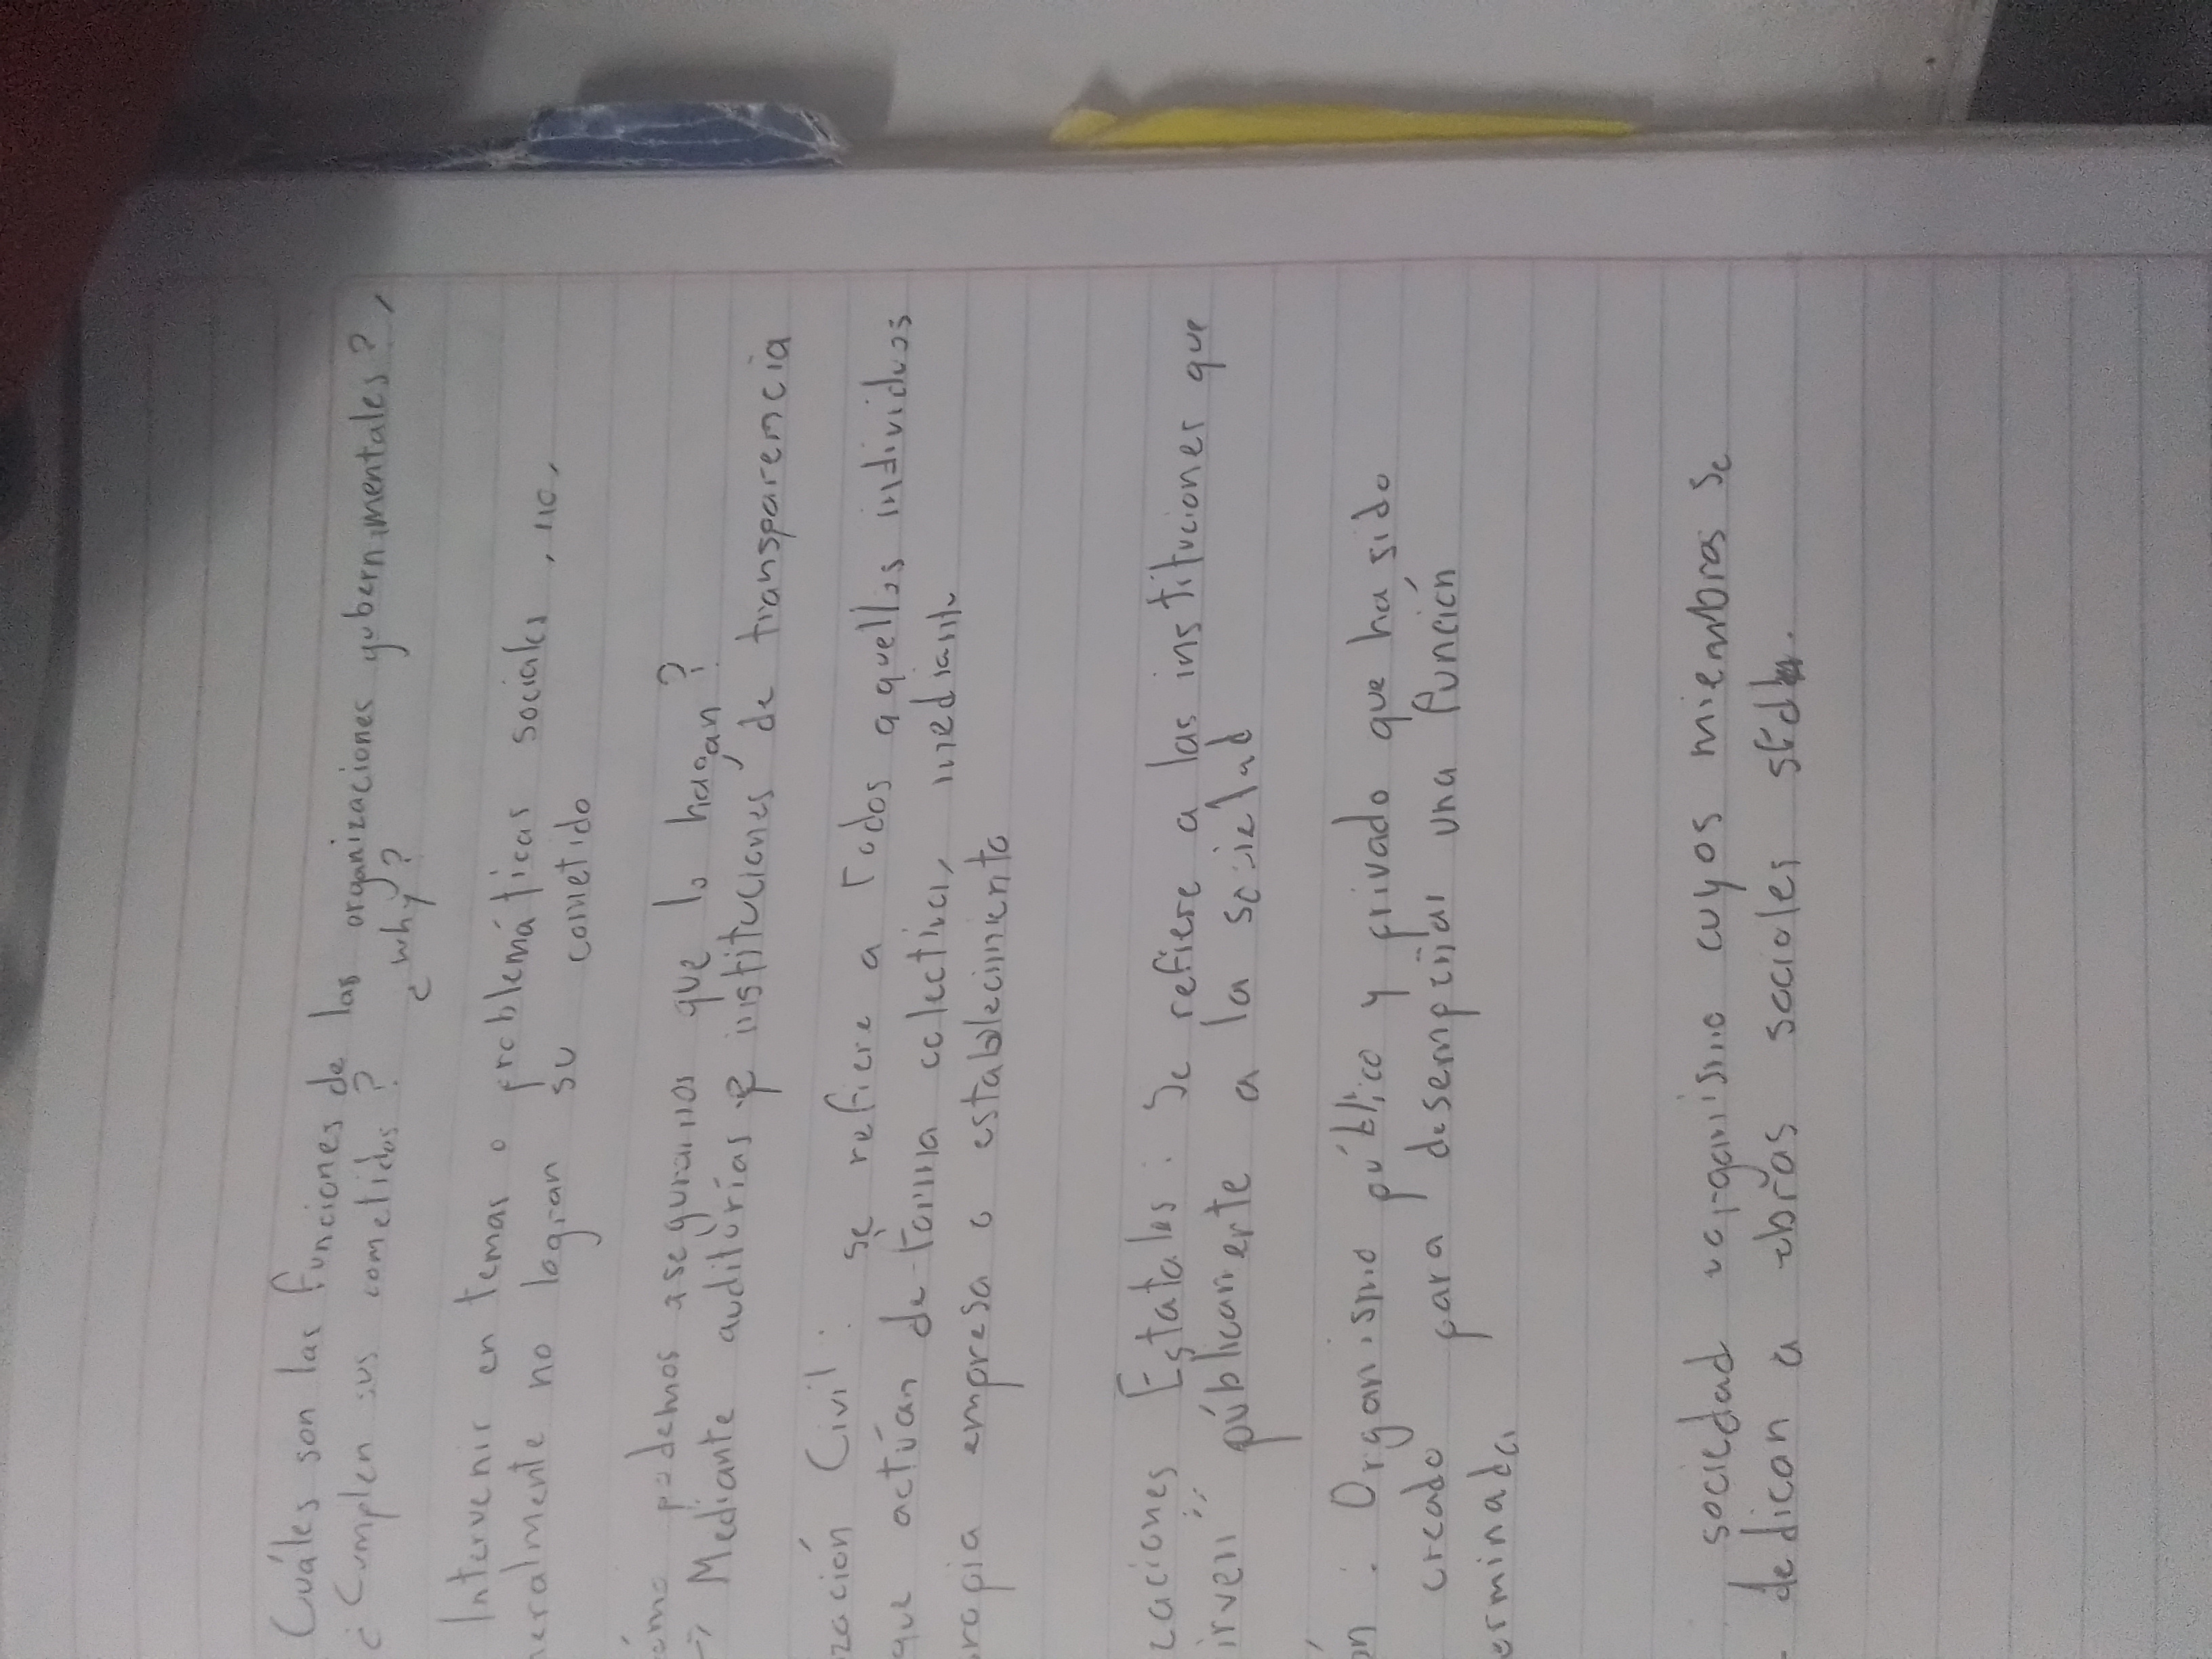 Cuáles son las funciones de las organizaciones gubernimentales?,
¿Cumplen sus cometidos? ¿why?
Intervenir en temas o problemáticas sociales, no,
neralmente no logran su cometido
ómo podemos asegurarnos que lo hagan?
Mediante auditorías e instituciones de transparencia
zación Civil: se refiere a todos aquellos individuos
que actúan de forma colectiva, mediante
ropia empresa o establecimiento
zaciones Estatales: Se refiere a las instituciones que
irven públicamente a la sociedad
ón: Organismo público y privado que ha sido
creado para desempeñar una función
erminada
sociedad u organismo cuyos miembros se
dedican a obras sociales